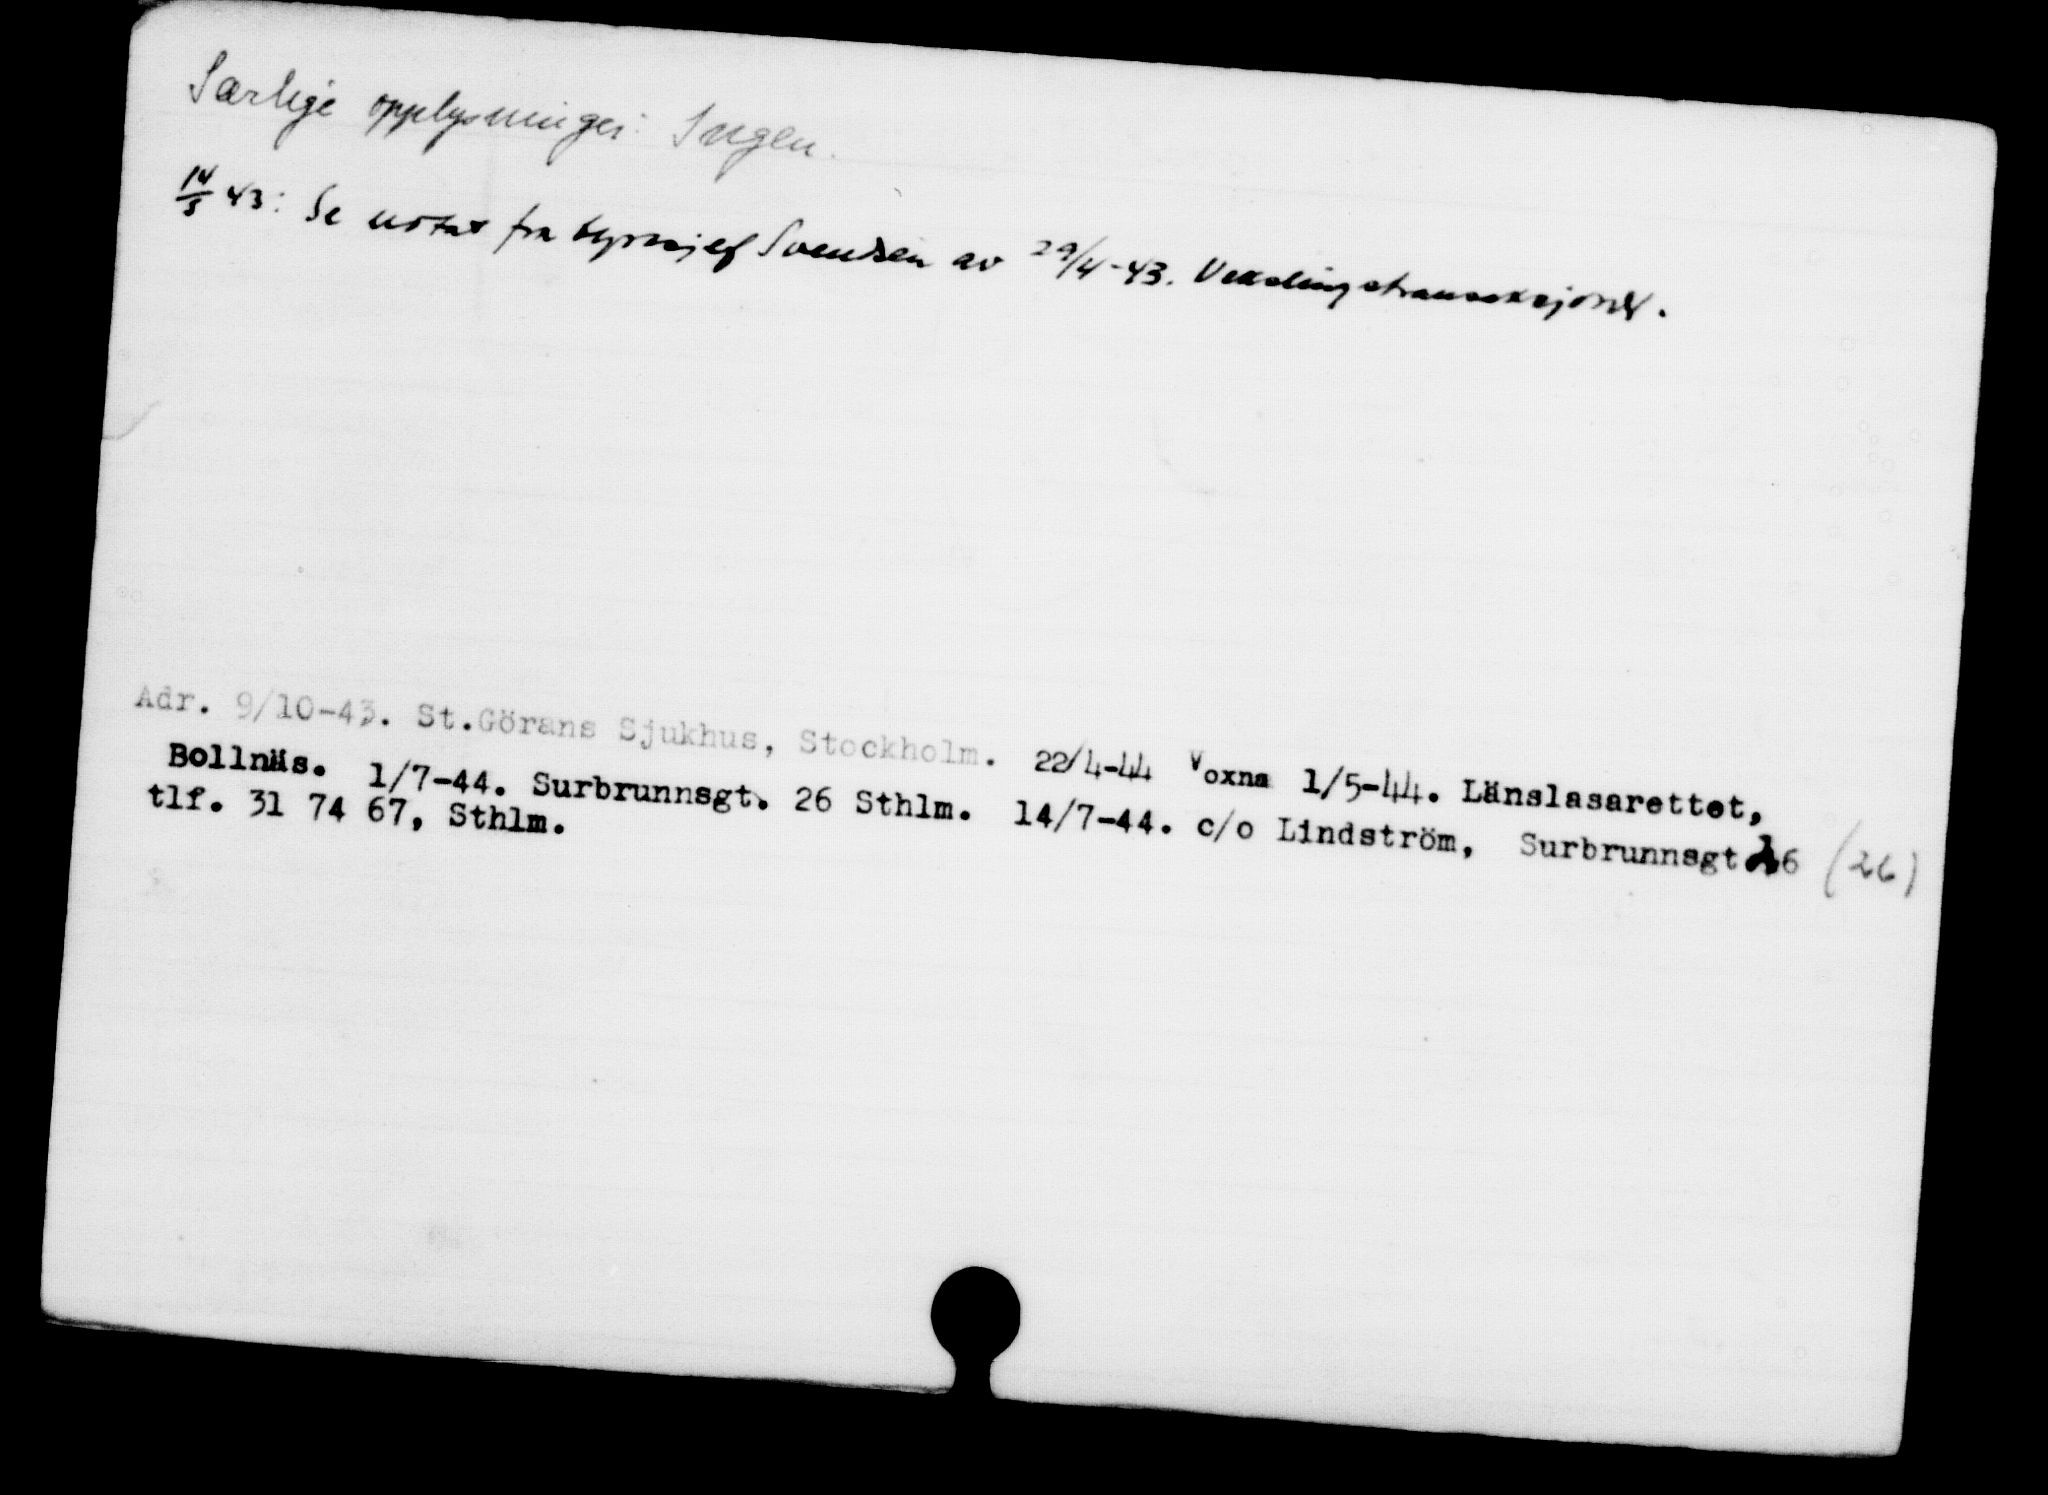 Særlige opplysninger: Ingen.
14/5 43: Se notat fra byråsjef Svendsen av 29/4-43. Vekslingstransaksjoner.
Adr. 9/10-43. St.Görans Sjukhus, Stockholm. 22/4-44 Voxna 1/5-44. Länslasarettet,
Bollnäs. 1/7-44. Surbrunnsgt. 26 Sthlm. 14/7-44. c/o Lindström, Surbrunnsgt 26 (26)
tlf. 31 74 67, Sthlm.